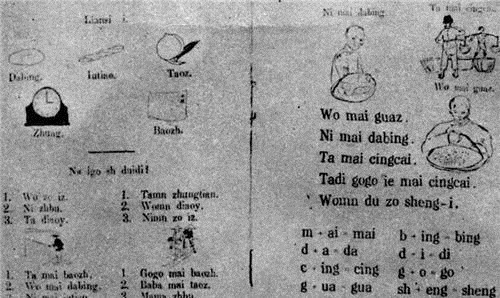 Liansi i.
Dabing. Iutiao. Taoz.
Zhung. Baozh.
Na igo sh duidi?
1. Wo zo iz. 1. Tamn zhungtian.
2. Ni zhbu. 2. Womn diaoy.
3. Ta diaoy. 3. Nimn zo iz.
1. Ta mai baozh. 1. Gogo mai baozh.
2. Wo mai dabing. 2. Baba mai taoz.
3. Mama zhbu
Ni mai dabing. Ta mai cingcai.
Wo mai guaz.
Wo mai guaz.
Ni mai dabing.
Ta mai cingcai.
Tadi gogo ie mai cingcai.
Womn du zo sheng-i.
m - ai - mai b - ing - bing
d - a - da d - i - di
c - ing - cing g - o - go
g - ua - gua sh - eng - sheng